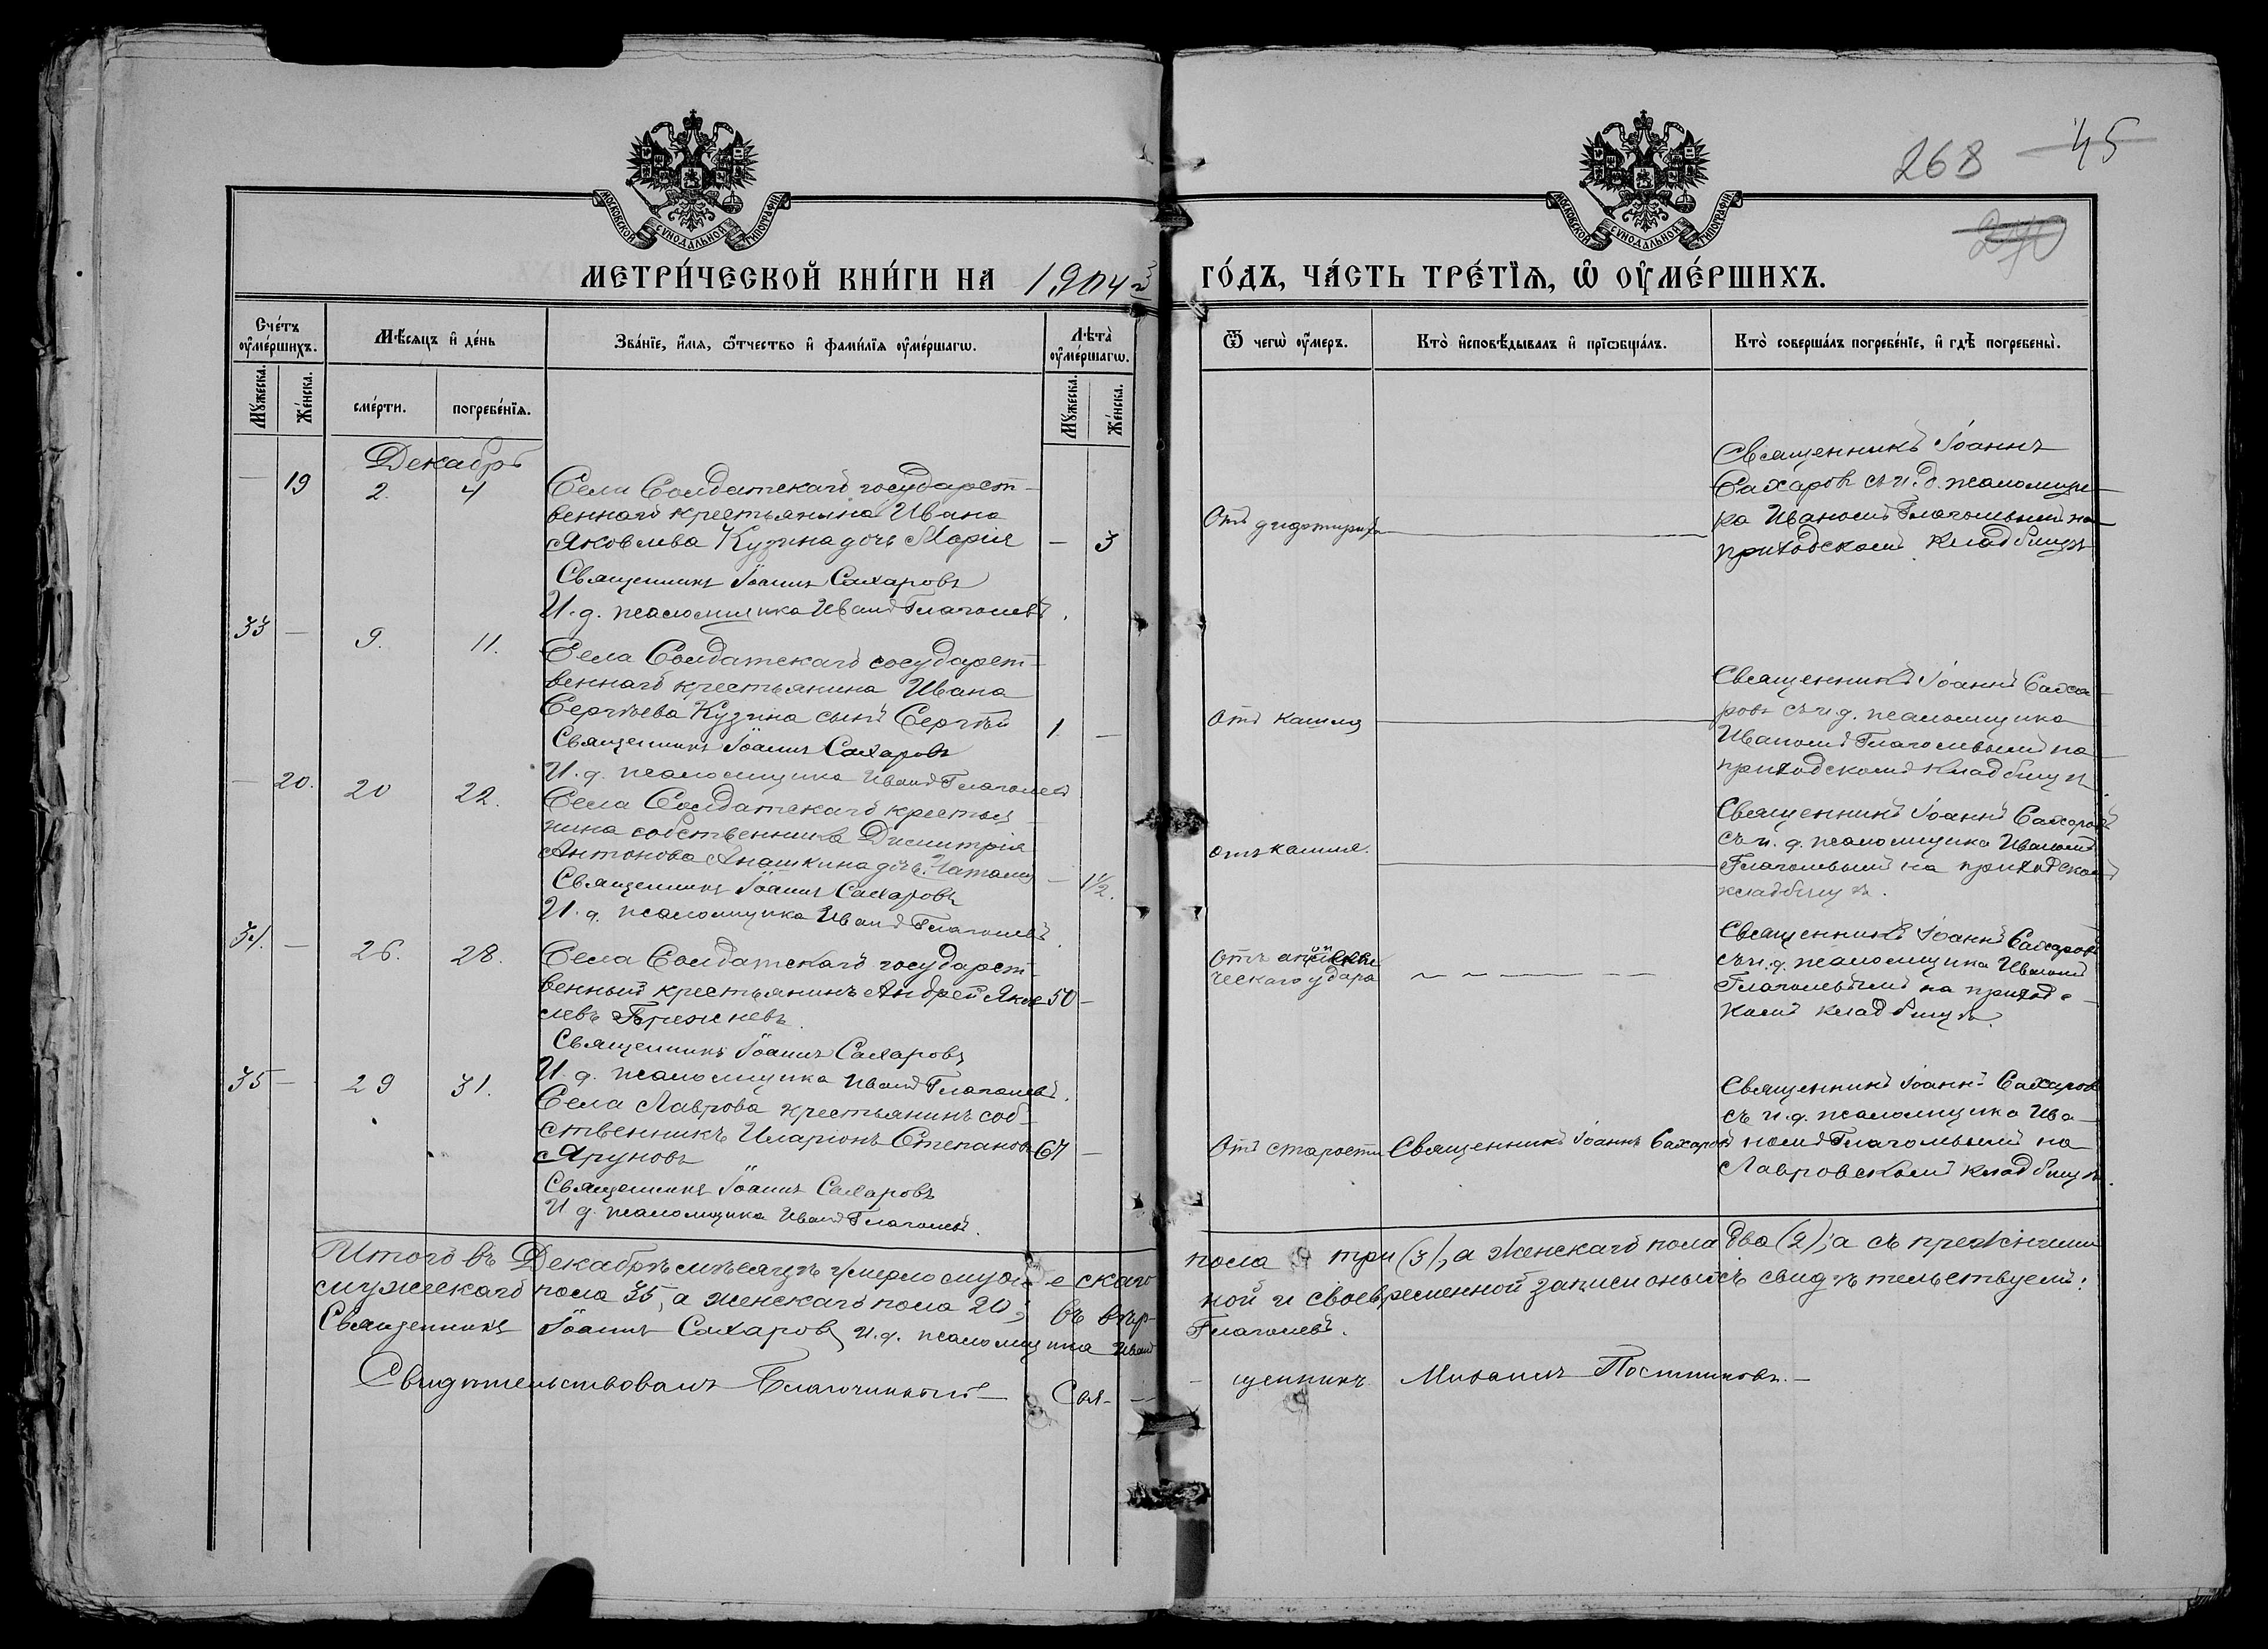 268 45
270
МОСКОВСКОЙ СУНОДАЛЬНОЙ ТИПОГРАФІИ.
МОСКОВСКОЙ СУНОДАЛЬНОЙ ТИПОГРАФІИ.
МЕТРИ́ЧЕСКОЙ КНИ́ГИ НА 1904 й
ГО́ДЪ, ЧА́СТЬ ТРЕ́ТІѦ, Ѡ ОУМЕ́РШИХЪ.
Сче́тъ оуме́ршихъ.
Мꙋ́жеска.
Же́нска.
Мѣ́сяцъ и де́нь
сме́рти.
погребе́нїѧ.
Зва́нїе, и́мѧ, ѻ҆́тчество и фами́лїѧ оуме́ршагѡ.
Лѣ́та оуме́ршагѡ.
Мꙋ́жеска.
Же́нска.
Ѿ чегѡ̀ оу́меръ.
Кто̀ и҆сповѣ́дывалъ и прїѡбща́лъ.
Кто̀ соверша́лъ погребе́нїе, и гдѣ̀ погребены̀.
Декабрь
— 19 2. 4
Села Солдатскаго государст-
веннаго крестьянина Ивана
Яковлева Кузина дочь Марія — 3
Священникъ Іоаннъ Сахаровъ
И. д. псаломщика Иванъ Глаголевъ.
Отъ дифтирита
Священникъ Іоаннъ
Сахаровъ съ и. д. псаломщи-
ка Иваномъ Глаголевымъ на
приходскомъ кладбищѣ
33 — 9. 11.
Села Солдатскаго государст-
веннаго крестьянина Ивана
Сергѣева Кузина сынъ Сергѣй 1 —
Священникъ Іоаннъ Сахаровъ
И. д. псаломщика Иванъ Глаголевъ
Отъ кашля
Священникъ Іоаннъ Саха-
ровъ съ и д. псаломщика
Иваномъ Глаголевымъ на
приходскомъ кладбищѣ
— 20. 20 22.
Села Солдатскаго крестья-
нина собственника Димитрія
Антонова Анашкина дочь Наталія — 1½.
Священникъ Іоаннъ Сахаровъ
И. д. псаломщика Иванъ Глаголевъ.
Отъ кашля.
Священникъ Іоаннъ Сахаровъ
съ и. д. псаломщика Иваномъ
Глаголевымъ на приходскомъ
кладбищѣ.
34. — 26. 28.
Села Солдатскаго государст-
венный крестьянинъ Андрей Яков- 50 —
левъ Брежневъ.
Священникъ Іоаннъ Сахаровъ
И. д. псаломщика Иванъ Глаголевъ.
ческаго удара
Священникъ Іоаннъ Сахаровъ
съ и. д. псаломщика Иваномъ
Глаголевымъ на приходс-
комъ кладбищѣ.
35 — 29 31.
Села Лаврова крестьянинъ соб-
ственникъ Иларіонъ Степановъ 67 —
Яруновъ
Священникъ Іоаннъ Сахаровъ
И д. псаломщика Иванъ Глаголевъ.
Отъ старости Священникъ Іоаннъ Сахаровъ
Священникъ Іоаннъ Сахаровъ
съ и. д. псаломщика Ива-
номъ Глаголевымъ на
Лавровскомъ кладбищѣ.
Итого въ Декабрѣ мѣсяцѣ умерло мужескаго пола три (3), а женскаго пола два (2), а съ прежними
мужескаго пола 35, а женскаго пола 20; въ вѣр- ной и своевременной записи оныхъ свидѣтельствуемъ:
Священникъ Іоаннъ Сахаровъ, и. д. псаломщика Иванъ Глаголевъ.
Свидѣтельствовалъ Благочинный — Свя- щенникъ Михаилъ Постниковъ. —